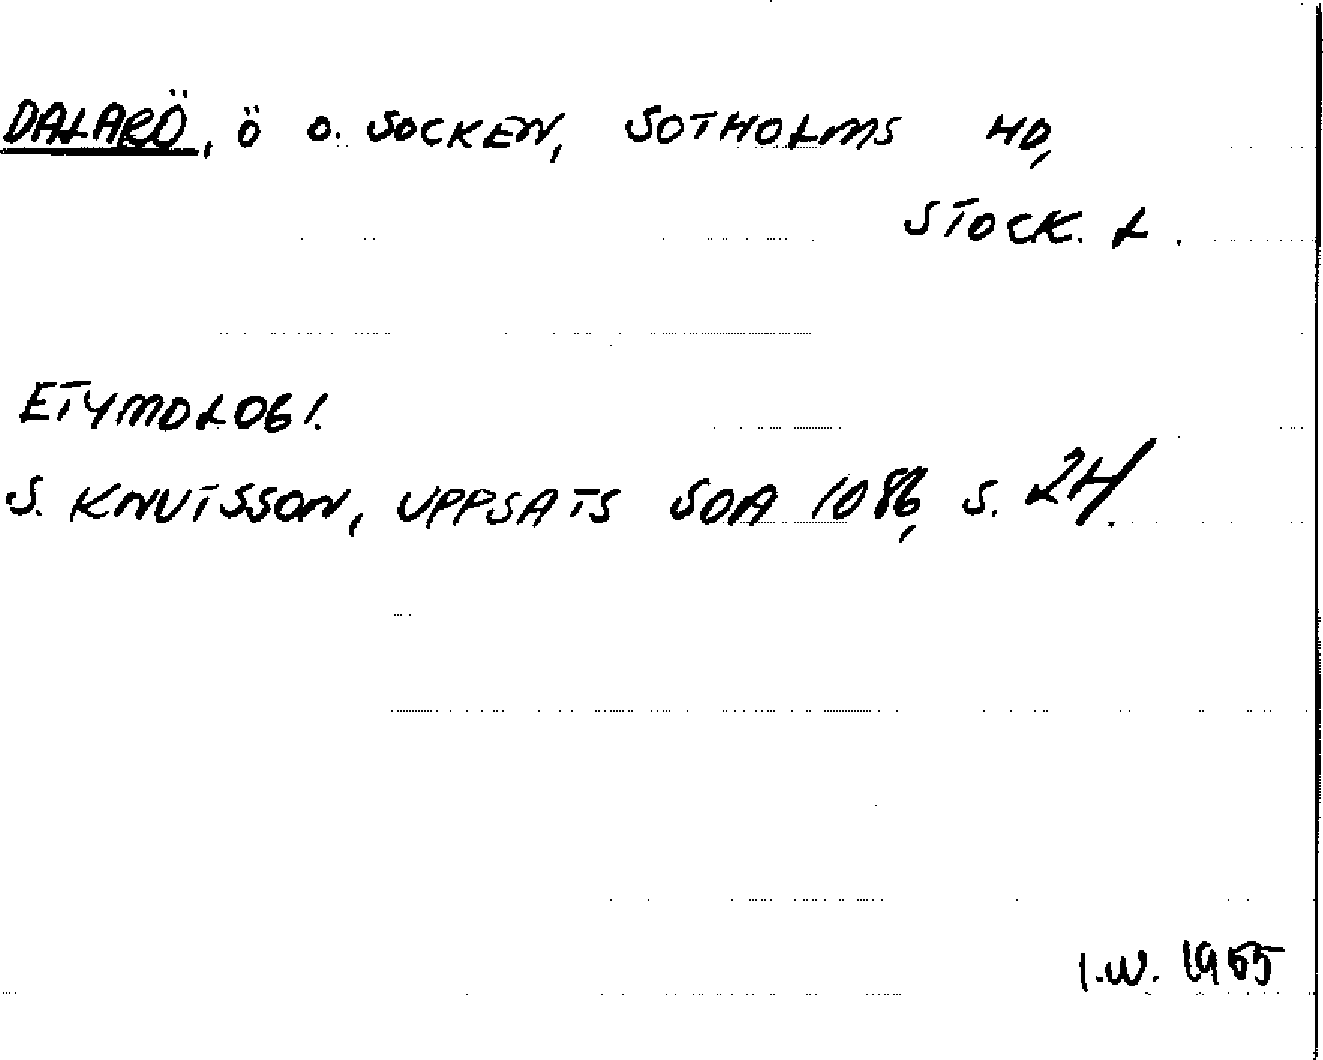 DALARÖ, Ö O. SOCKEN, SOTHOLMS HD,
STOCK. L.
ETYMOLOGI.
S. KNUTSSON, UPPSATS SOA 1086, S. 24.
I.W. 1965